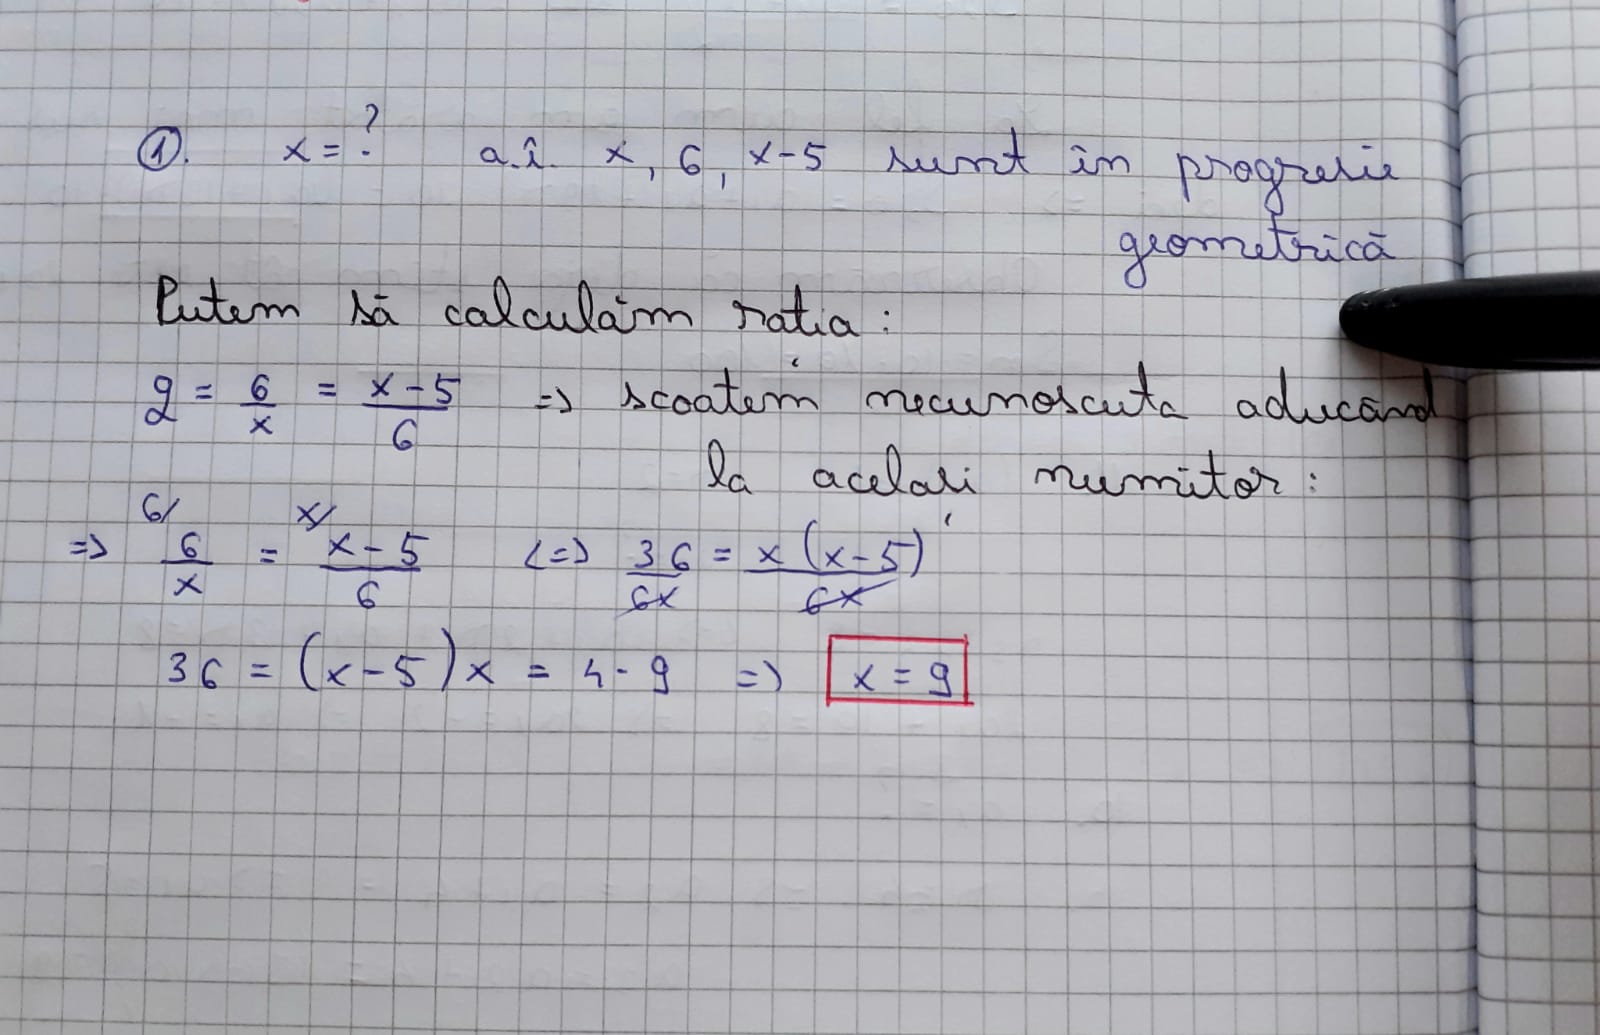 ①. x = ? a.î. x, 6, x-5 sunt în progresie
geometrică
Putem să calculăm ratia:
q = 6/x = x-5/6 => scoatem necunoscuta aducând
la acelasi numitor:
=> 6/ 6/x = x/ x-5/6 <=> 36/6x = x(x-5)/6x
36 = (x-5)x = 4·9 => x = 9